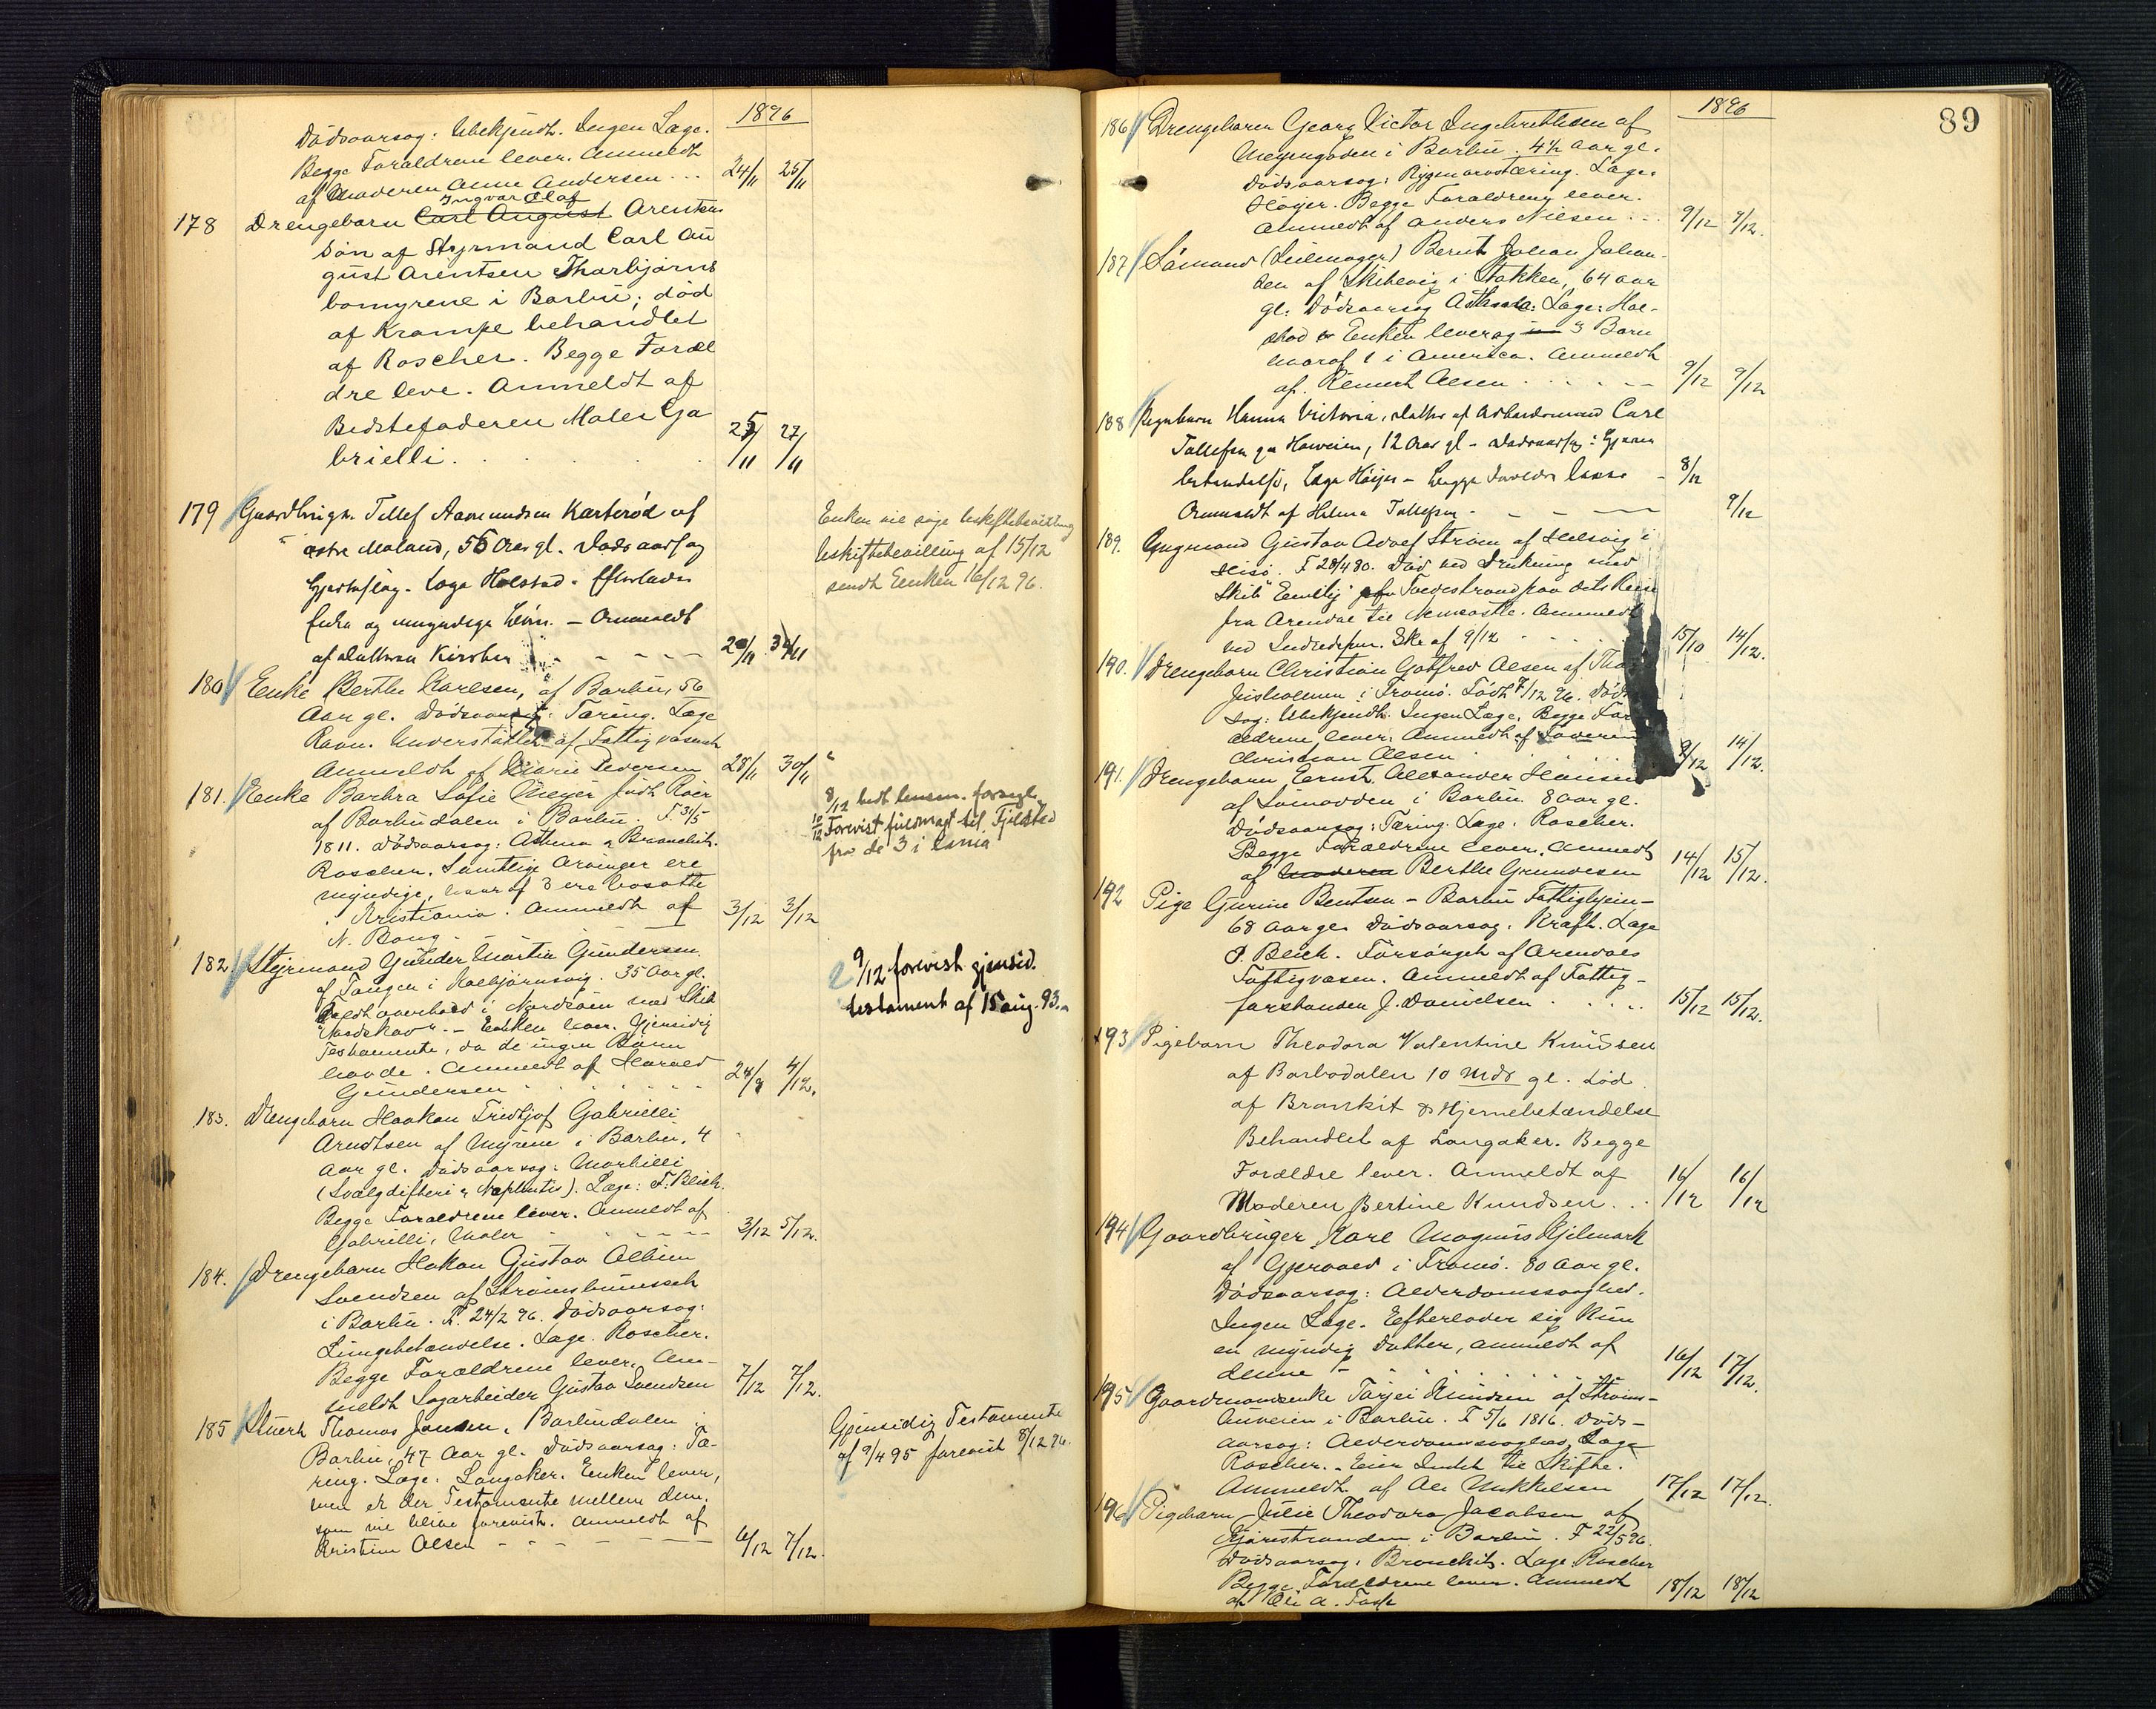 1896
Dödsaarsag: Ubekjendt. Ingen Læge.
Begge Forældrene lever. Anmeldt
af Moderen Anne Andersen ... 24/11 25/11
Ingvar Olaf
178 Drengebarn Carl August Arentsen
Sön af Styrmand Carl Au
gust Arentsen Thorbjörns
bomyrene i Barbu; död
af Krampe behandlet
af Roscher. Begge Foræl
dre leve. Anmeldt af
Bedstefaderen Maler Ga
brielli. 25/11 27/11
179 Gaardbrüger Tellef Aamundsen Karterød af
østre Moland, 56 Aar gl. Dødsaarsag
Hjerteslag. Læge Holstad. Efterlader
Enke og umyndige Börn. – Anmeldt
af Datteren Kirsten - - - - 28/11 30/11
Enken vil søge
Uskiftebevilling af 15/12
sendt Enken 16/12 96.
180 Enke Berthe Karlsen, af Barbu, 56
Aar gl. Dödsaarsag: Tæring. Læge
Ravn. Understöttet af Fattigvæsenet
Anmeldt af Marie Pedersen 28/11 30/11
181. Enke Barbra Sofie Meyer födt Röer
af Barbudalen i Barbu. F. 31/5
1811. Dödsaarsag: Asthma & Bronchit.
Roscher. Samtlige Arvinger ere
myndige, hvoraf 3 ere bosatte
i Kristiania. Anmeldt af 3/12 3/12
N. Bang
8/12 bedt lensm. forsegl.
10/12 Forevist fuldmagt til Fjeldsted
fra de 3 i Xania
182. Styrmand Gunder Martin Gundersen
af Tangen i Kolbjörnsvig. 35 Aar gl.
Faldt overbord i Nordsöen med Skib
"Nordskov". – Enken lever. Gjensidig
Testamente, da de ingen Börn
havde. Anmeldt af Harald
Gundersen 24/9 4/12.
9/12 forevist gjensid.
testament af 15 aug. 93.
183. Drengebarn Haakon Fredtjof Gabrielli
Arndtsen af Myrene i Barbu, 4
Aar gl. Dödsaarsag: Morbilli
(Svælgdifteri & Nephritis). Læge: F. Bleich.
Begge Forældrene lever. Anmeldt af
Gabrielli, Maler - - - 3/12 5/12.
184. Drengebarn Hakon Gustav Albin
Svendsen af Strömsbuneset
i Barbu. F. 24/2 96. Dödsaarsag:
Lungebetændelse. Læge. Roscher.
Begge Forældrene lever. An-
meldt Sagarbeider Gustav Svendsen 7/12 7/12.
185 Stuert Thomas Jensen, Barbudalen i
Barbu, 47 Aar gl. Dödsaarsag: Tæ-
ring. Læge: Langaker. Enken lever,
men er der Testamente mellem dem,
som vil blive forevist. Anmeldt af
Kristine Olsen - - - - 6/12 7/12.
Gjensidig Testamente
af 9/4 95 forevist 8/12 96.
89
1896
186 Drengebarn Georg Victor Ingebrethsen af
i Barbu. 4½ Aar gl.
Dödsaarsag: Rygmarvstæring. Læge:
Höyer. Begge Forældrene lever.
Anmeldt af Anders Nilsen ... 9/12 9/12.
187 Sömand (Seilmager) Bernt Johan Johan-
sen af Skibevig i Stokken, 64 Aar
gl. Dödsaarsag Asthma. Læge: Hol-
stad Enken lever og 3 Børn
hvoraf 1 i America. Anmeldt
af. Reinert Olsen 9/12 9/12
188 Pigebarn Hanna Victoria, datter af Arbeidsmand Carl
Tollefsen paa Haveien, 12 Aar gl – Dødsaarsag: Hjerne
betændelse, Læge Höyer – begge Forældre leve - 8/12
Anmeldt af Helma Tollefsen - - - 9/12
189. Ungmand Gustav Adolf Ström af Helsvig i
Hisö. F 28/4 80. Död ved Drukning med
Skib "Emilij" af Tvedestrand paa dets Reise
fra Arendal til Newcastle. Anmeldt
ved Indredepm. Skr af 9/12 15/10 14/12.
190. Drengebarn Christian Gotfred Olsen af
i Tromö. Födt 7/12 96. Död
sag: Ubekjendt. Ingen Læge. Begge For
ældrene lever. Anmeldt af Faderen
Christian Olsen 9/12 14/12.
191. Drengebarn Ernst Alexander Hansen
af i Barbu. 8 Aar gl.
Dödsaarsag: Tæring. Læge. Roscher.
Begge Forældrene lever. Anmeldt
af Moderen Berthe Gundersen 14/12 15/12.
192 Pige Gurine Bentsen – Barbu Fattighjem –
68 Aar gl. Dödsaarsag: Kræft. Læge
P. Bleich. Forsörget af Arendals
Fattigvæsen. Anmeldt af Fattig-
forstander J. Danielsen 15/12 15/12.
193 Pigebarn Theodora Valentine Knudsen
af Barbodalen 10 Mdr gl. död
af Bronkit & Hjernebetændelse
Behandlet af Langaker. Begge
Forældre lever. Anmeldt af
Moderen Bertine Knudsen ... 16/12 16/12
194 Gaardbruger Karl Magnus Kjelmark
af Gjervold i Tromö. 80 Aar gl.
Dödsaarsag: Alderdomssvaghed.
Ingen Læge. Efterlader sig Kun
en myndig Datter, anmeldt af
denne 16/12 17/12.
195 Gaardmandsenke Tarjei Knudsen af Ströms-
buveien i Barbu. F 5/6 1816. Döds-
aarsag: Alderdomssvaghed, Læge
Roscher. – Eier Intet til Skifte.
Anmeldt af Ole Mikkelsen 17/12 17/12.
196 Pigebarn Julie Theodora Jacobsen af
Kjærestranden i Barbu. F 22/5 96.
Dödsaarsag: Bronchit. Læge. Roscher
Begge Forældrene lever. Anmeldt
af Ole A. 18/12 18/12